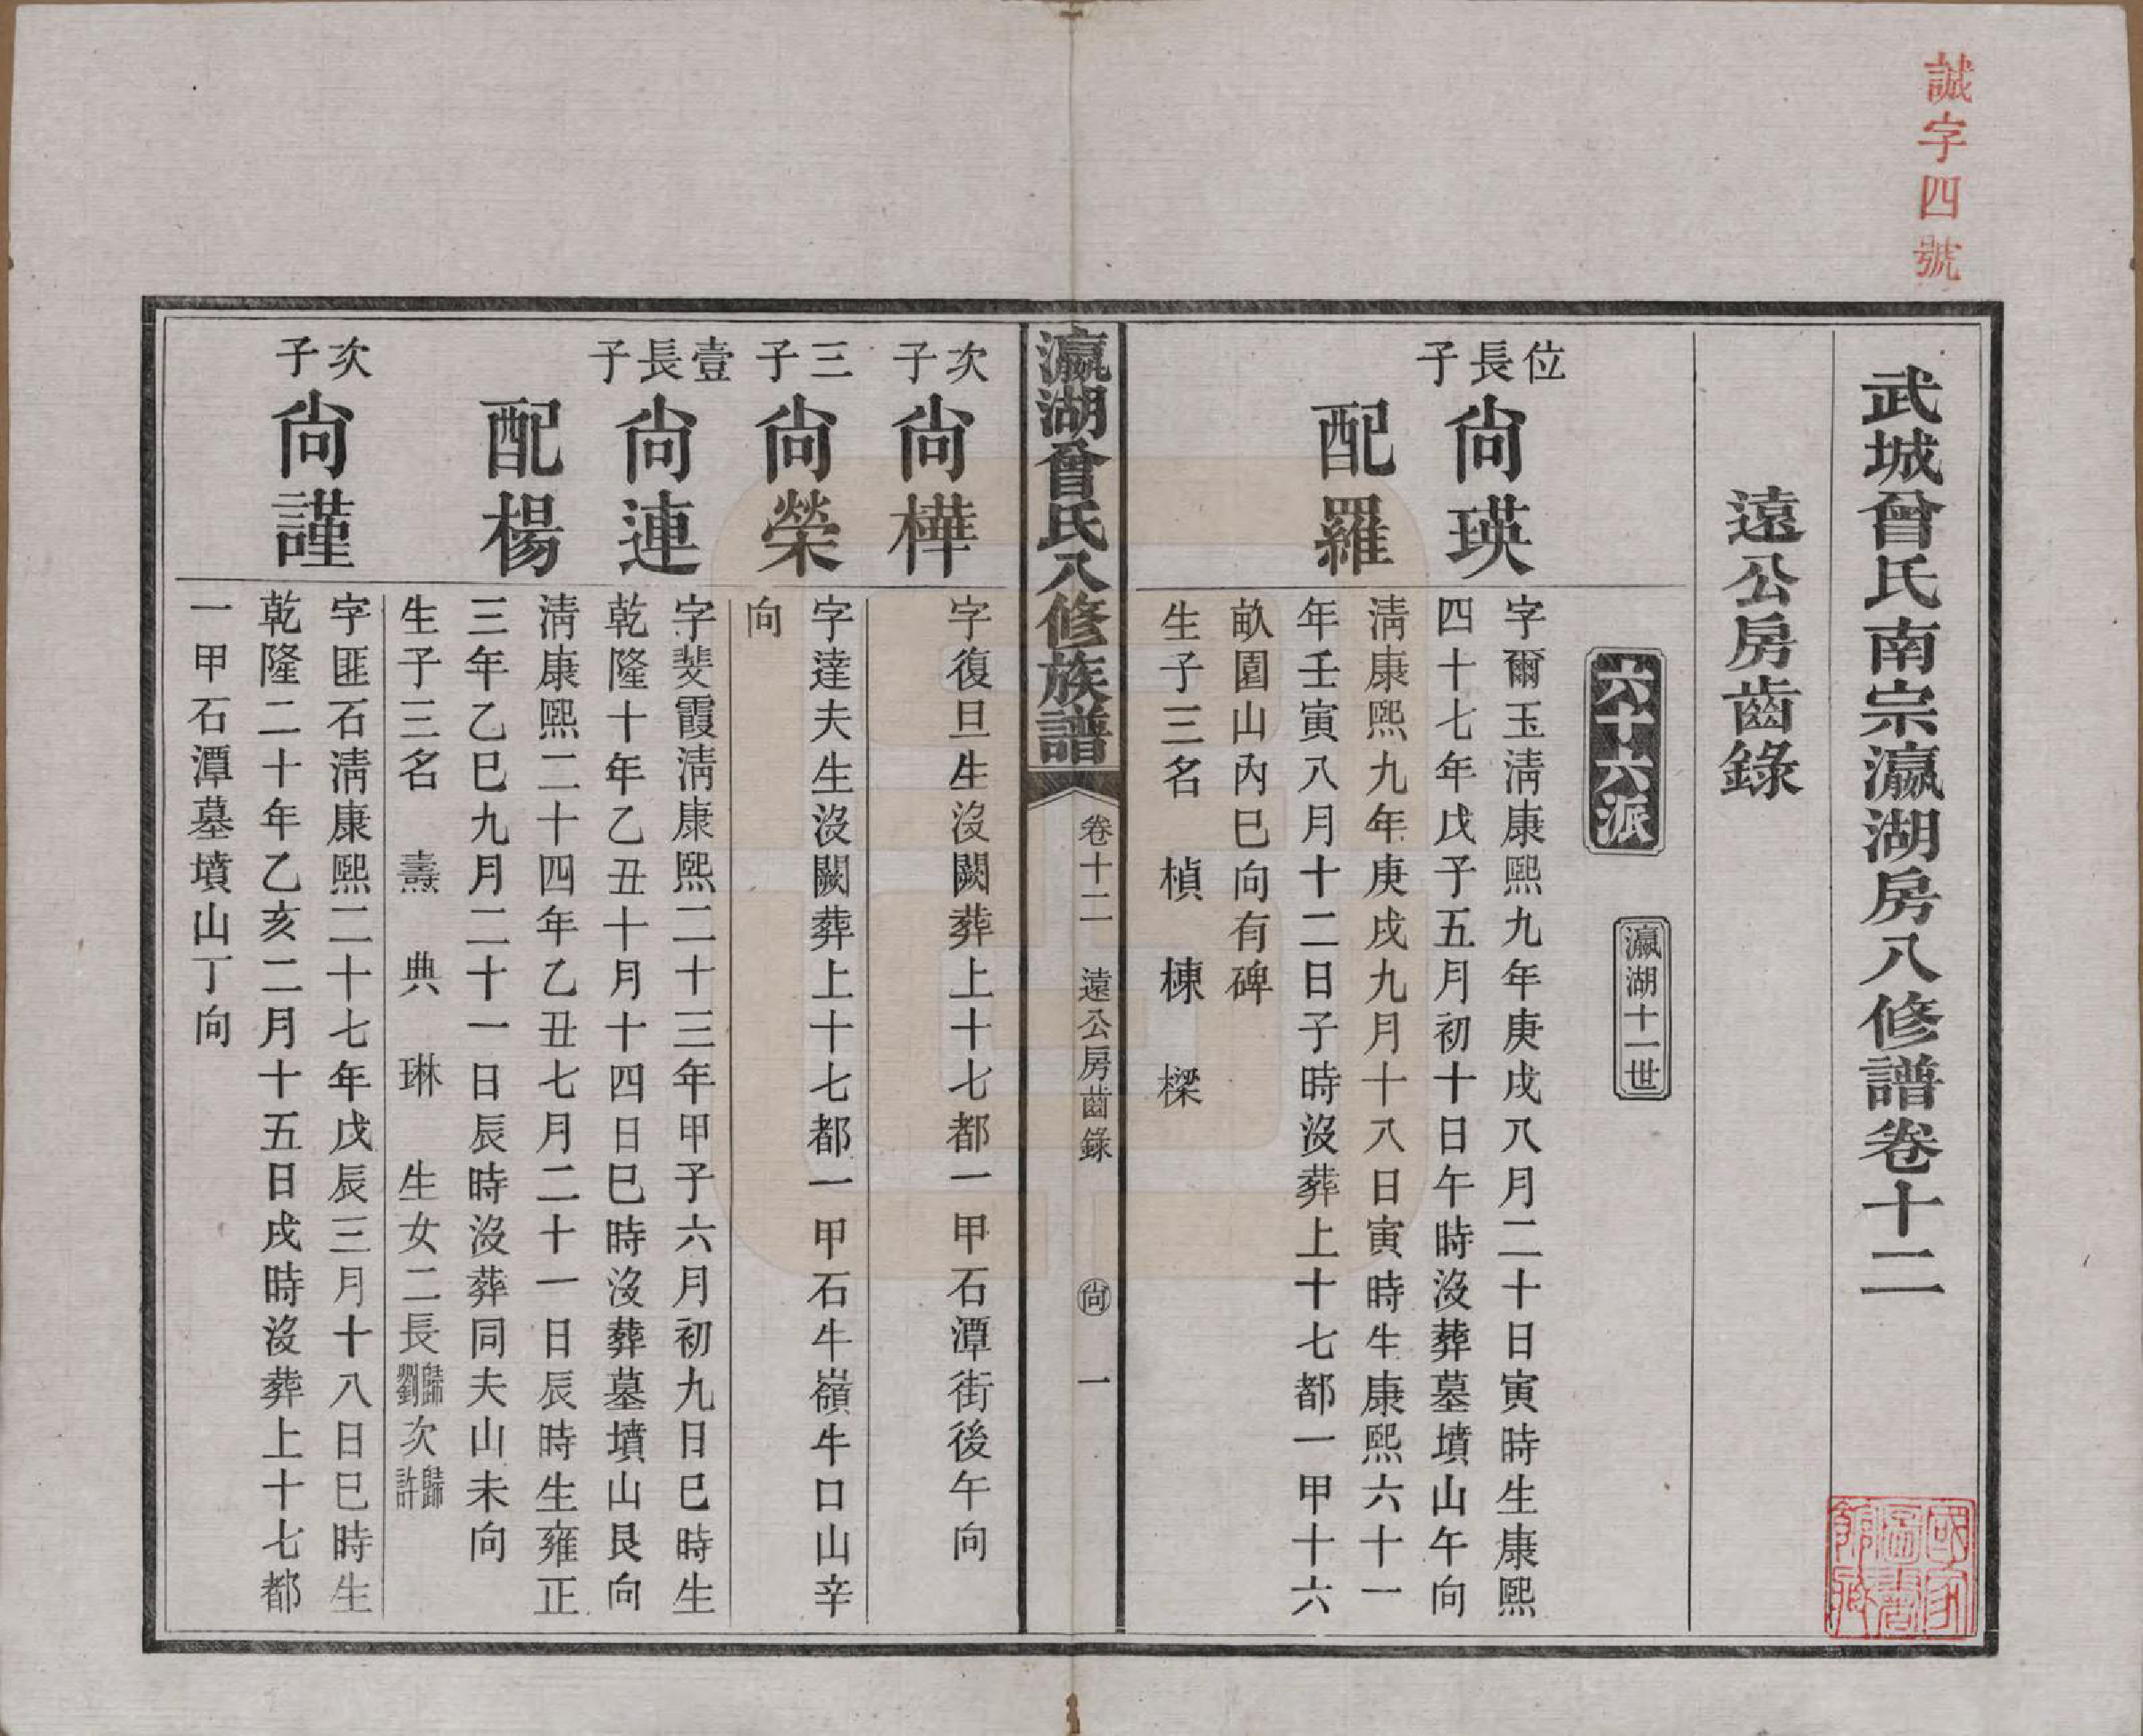 誠字四號
武城曾氏南宗瀛湖房八修譜卷十二
遠公房齒錄
六十六派
瀛湖十一世
位長子
尙瑛
字爾玉淸康熙九年庚戌八月二十日寅時生康熙
四十七年戊子五月初十日午時沒葬墓墳山午向
配羅
淸康熙九年庚戌九月十八日寅時生康熙六十一
年壬寅八月十二日子時沒葬上十七都一甲十六
畝園山內巳向有碑
生子三名 楨 棟 樑
瀛湖曾氏八修族譜
卷十二 遠公房齒錄 尙 一
次子
尙樺
字復旦生沒闕葬上十七都一甲石潭街後午向
三子
尙榮
字達夫生沒闕葬上十七都一甲石牛嶺牛口山辛
向
壹長子
尙連
字斐霞淸康熙二十三年甲子六月初九日巳時生
乾隆十年乙丑十月十四日巳時沒葬墓墳山艮向
配楊
淸康熙二十四年乙丑七月二十一日辰時生雍正
三年乙巳九月二十一日辰時沒葬同夫山未向
生子三名 燾 典 琳 生女二長歸劉次歸許
次子
尙謹
字匪石淸康熙二十七年戊辰三月十八日巳時生
乾隆二十年乙亥二月十五日戌時沒葬上十七都
一甲石潭墓墳山丁向
國家圖書館藏